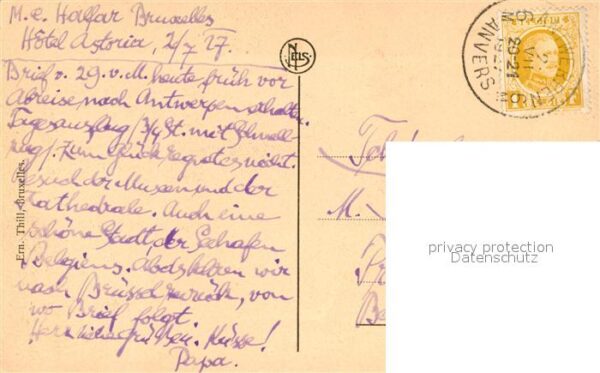 M.e. Halfar Bruxelles
Hôtel Astoria, 2/7 27.
Brief v. 29. v. M. heute, früh vor
Abreise nach Antwerpen erhalten.
Tagesausflug / 3/4 St. mit Schnell-
zug /. Zum Glück regnet es nicht.
Besuch der Museen und der
Kathedrale. Auch eine
schöne Stadt, der Seehafen
Belgiens. Abds kehren wir
nach Brüssel zurück, von
wo Brief folgt.
Herzliche Grüße. Küsse!
Papa.
Ern. Thill, Bruxelles.
NELS
ANTWERPEN
2
VII
20-21
1927
ANVERS
M.
privacy protection
Datenschutz